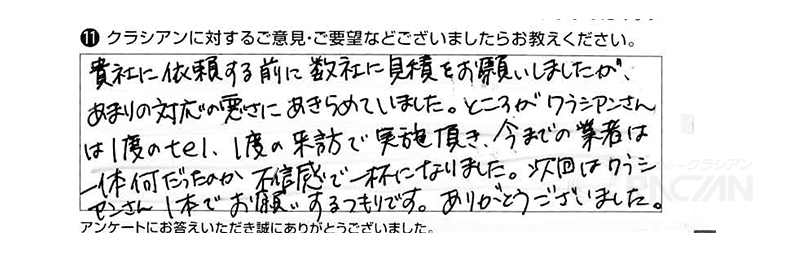 ⓫ クラシアンに対するご意見・ご要望などございましたらお教えください。
貴社に依頼する前に数社に見積をお願いしましたが、
あまりの対応の悪さにあきらめていました。ところがクラシアンさん
は1度のtel、1度の来訪で実施頂き、今までの業者は
一体何だったのか不信感で一杯になりました。次回はクラシ
アンさん1本でお願いするつもりです。ありがとうございました。
アンケートにお答えいただき誠にありがとうございました。